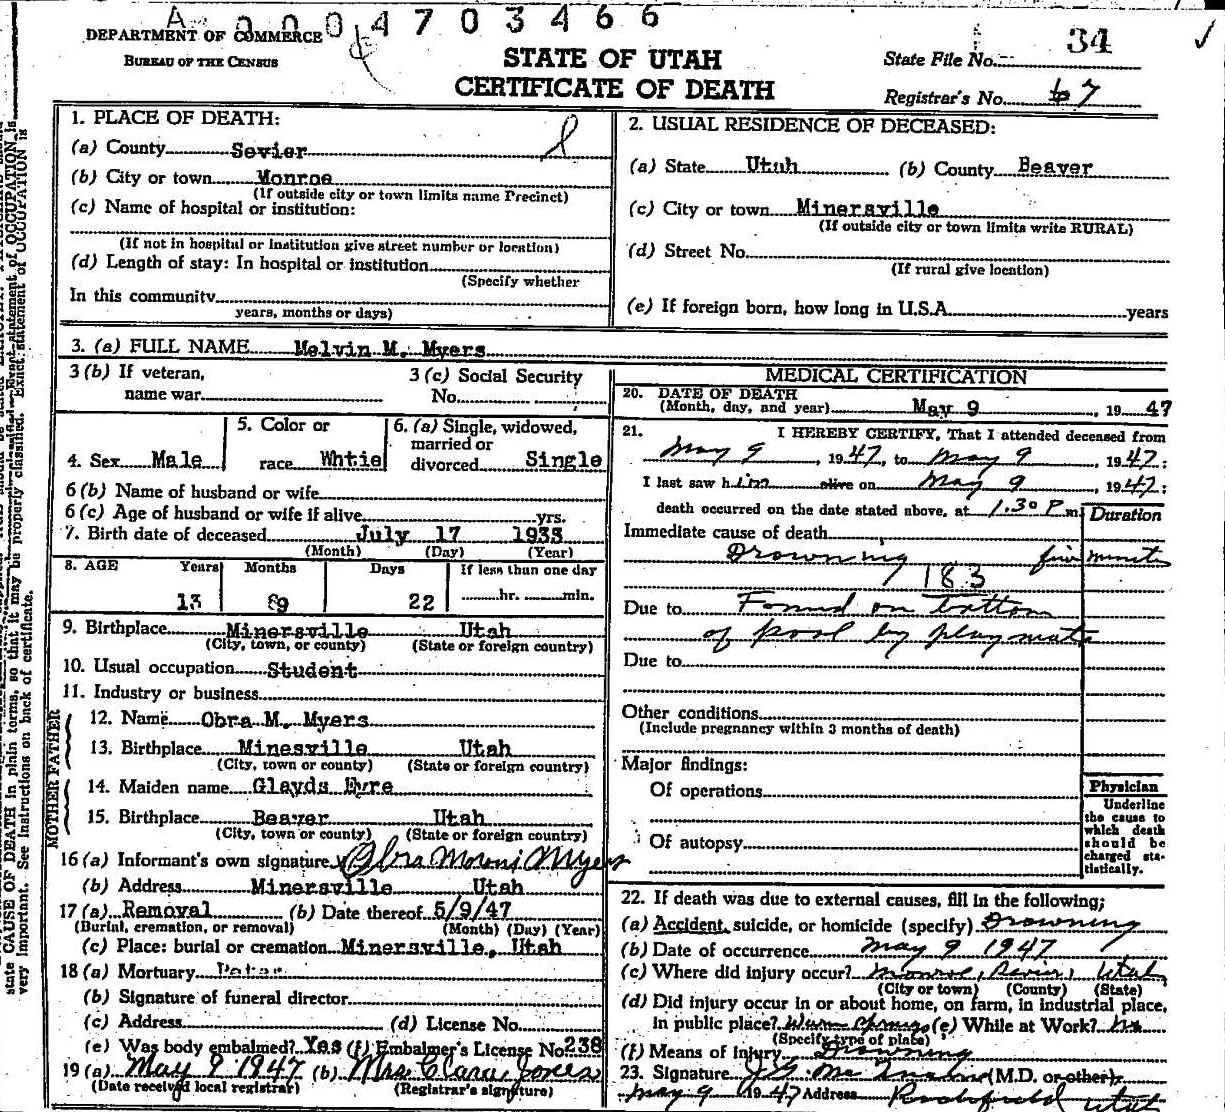 A0004703466
DEPARTMENT OF COMMERCE
BUREAU OF THE CENSUS
STATE OF UTAH
CERTIFICATE OF DEATH
34
State File No.
Registrar's No. 67
1. PLACE OF DEATH:
(a) County Sevier
(b) City or town Monroe
(If outside city or town limits name Precinct)
(c) Name of hospital or institution:
(If not in hospital or institution give street number or location)
(d) Length of stay: In hospital or institution
(Specify whether
In this community
years, months or days)
2. USUAL RESIDENCE OF DECEASED:
(a) State Utah (b) County Beaver
(c) City or town Minersville
(If outside city or town limits write RURAL)
(d) Street No.
(If rural give location)
(e) If foreign born, how long in U.S.A. years
3. (a) FULL NAME Melvin M. Myers
3 (b) If veteran,
name war
3 (c) Social Security
No.
4. Sex Male
5. Color or
race Whtie
6. (a) Single, widowed,
married or
divorced Single
6 (b) Name of husband or wife
6 (c) Age of husband or wife if alive yrs.
7. Birth date of deceased July 17 1933
(Month) (Day) (Year)
8. AGE Years Months Days If less than one day
13 9 22 hr. min.
9. Birthplace Minersville Utah
(City, town, or county) (State or foreign country)
10. Usual occupation Student
11. Industry or business
FATHER
12. Name Obra M. Myers
13. Birthplace Minesville Utah
(City, town or county) (State or foreign country)
MOTHER
14. Maiden name Glayds Eyre
15. Birthplace Beaver Utah
(City, town or county) (State or foreign country)
16 (a) Informant's own signature x Obra Moroni Myers
(b) Address Minersville Utah
17 (a) Removal (b) Date thereof 5/9/47
(Burial, cremation, or removal) (Month) (Day) (Year)
(c) Place: burial or cremation Minersville, Utah
18 (a) Mortuary
(b) Signature of funeral director
(c) Address (d) License No.
(e) Was body embalmed? Yes (f) Embalmer's License No. 238
19 (a) May 9 1947 (b) Mrs Clara Jones
(Date received local registrar) (Registrar's signature)
MEDICAL CERTIFICATION
20. DATE OF DEATH
(Month, day, and year) May 9, 1947
21. I HEREBY CERTIFY, That I attended deceased from
May 9, 1947, to May 9, 1947;
I last saw him alive on May 9, 1947;
death occurred on the date stated above, at 1:30 P m.
Duration
Immediate cause of death
Drowning five minutes
183
Due to Found on bottom
of pool by playmate
Due to
Other conditions
(Include pregnancy within 3 months of death)
Major findings:
Of operations
Of autopsy
Physician
Underline
the cause to
which death
should be
charged sta-
tistically.
22. If death was due to external causes, fill in the following;
(a) Accident, suicide, or homicide (specify) Drowning
(b) Date of occurrence May 9 1947
(c) Where did injury occur? Monroe, Sevier, Utah
(City or town) (County) (State)
(d) Did injury occur in or about home, on farm, in industrial place,
in public place? Warm Springs (e) While at Work? No
(Specify type of place)
(f) Means of injury Drowning
23. Signature (M.D. or other)
May 9 1947 Address Richfield Utah
state CAUSE OF DEATH in plain terms, so that it may be properly classified. Exact statement of OCCUPATION is
very important. See instructions on back of certificate.